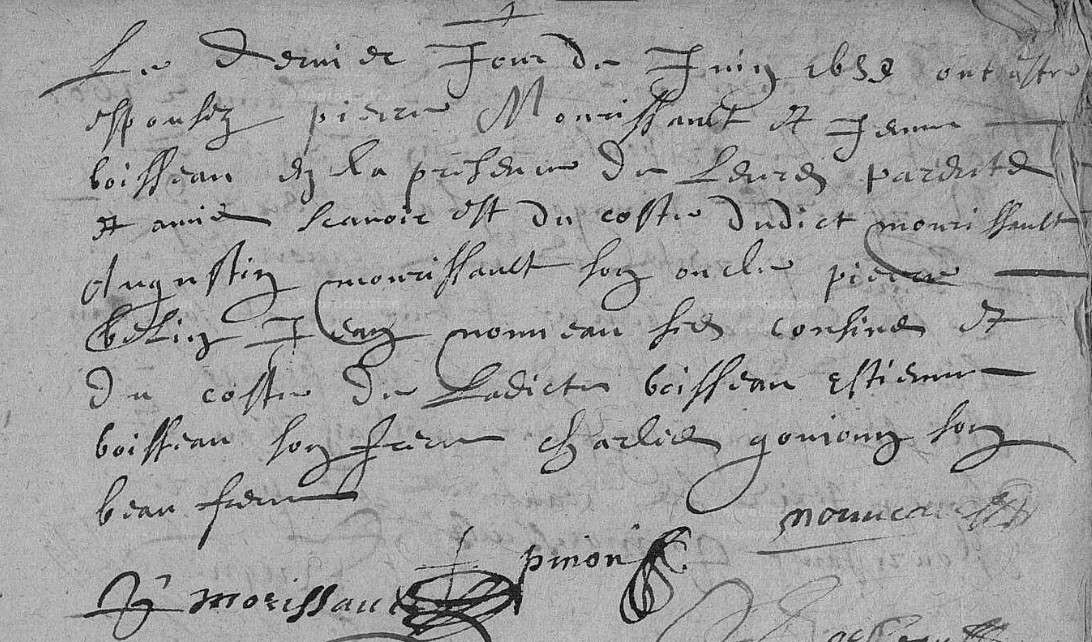 Le dernier Jour de Juin 1658 ont estre
espousez pierre Mourissault et Jenne
boisseau en la presence de Leurs parents
et amis scavoir est du coste dudict mourissault
Augustin mourissault son oncle pierre
belin Jean nonneau ses cousins et
du coste de Ladicte boisseau Estienne
boisseau son frere charles gouionn son
beau frere
nonneau
pinon
morissault